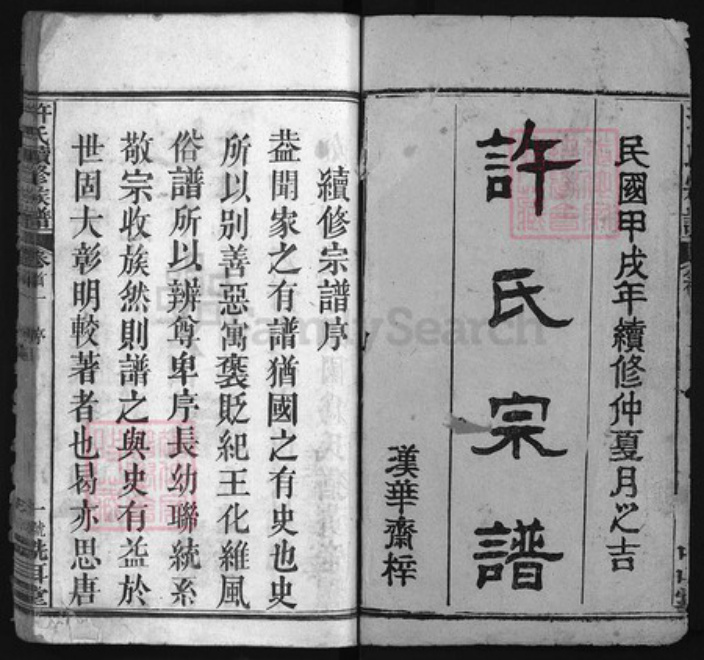 民國甲戌年續修仲夏月之吉
許氏宗譜
漢華齋梓
續修宗譜序
葢聞家之有譜猶國之有史也史
所以别善惡寓褒貶紀王化維風
俗譜所以辨尊卑序長幼聯統系
敬宗收族然則譜之與史有益於
世固大彰明較著者也曷亦思唐
許氏續修族譜
卷首一
序
一號
洗耳堂
FamilySearch